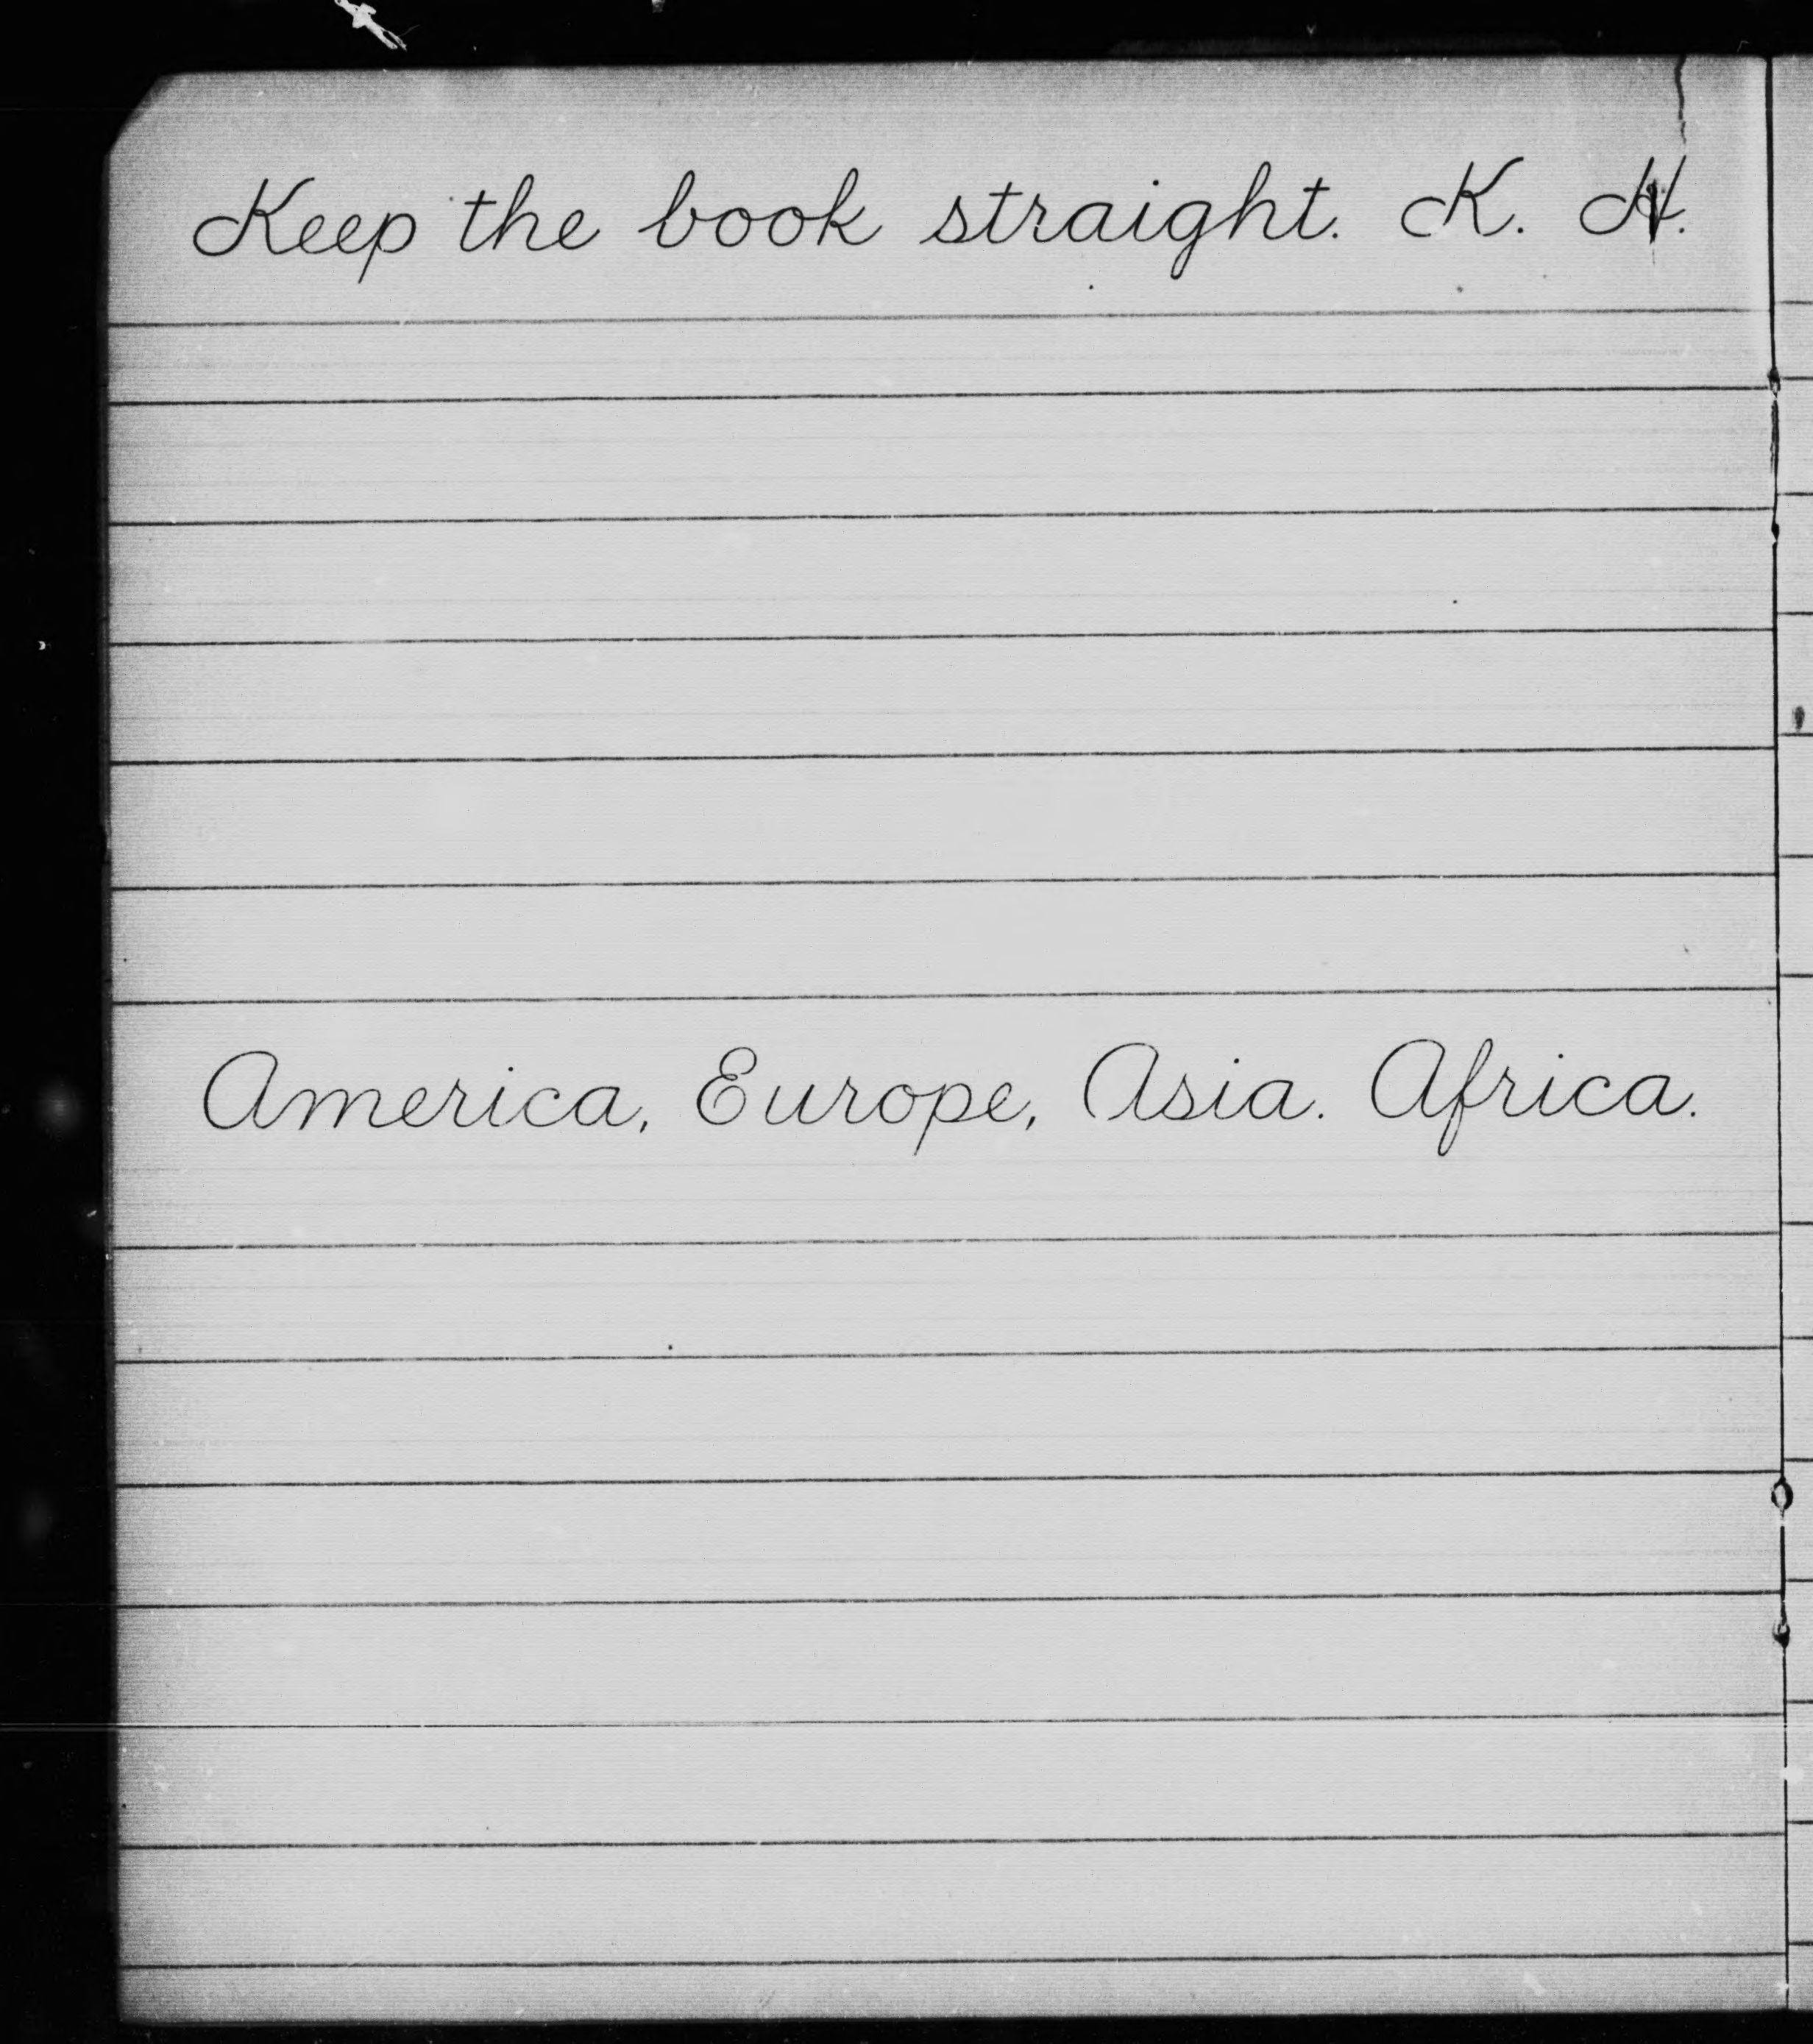 Keep the book straight. K. H.
America, Europe, Asia. Africa.